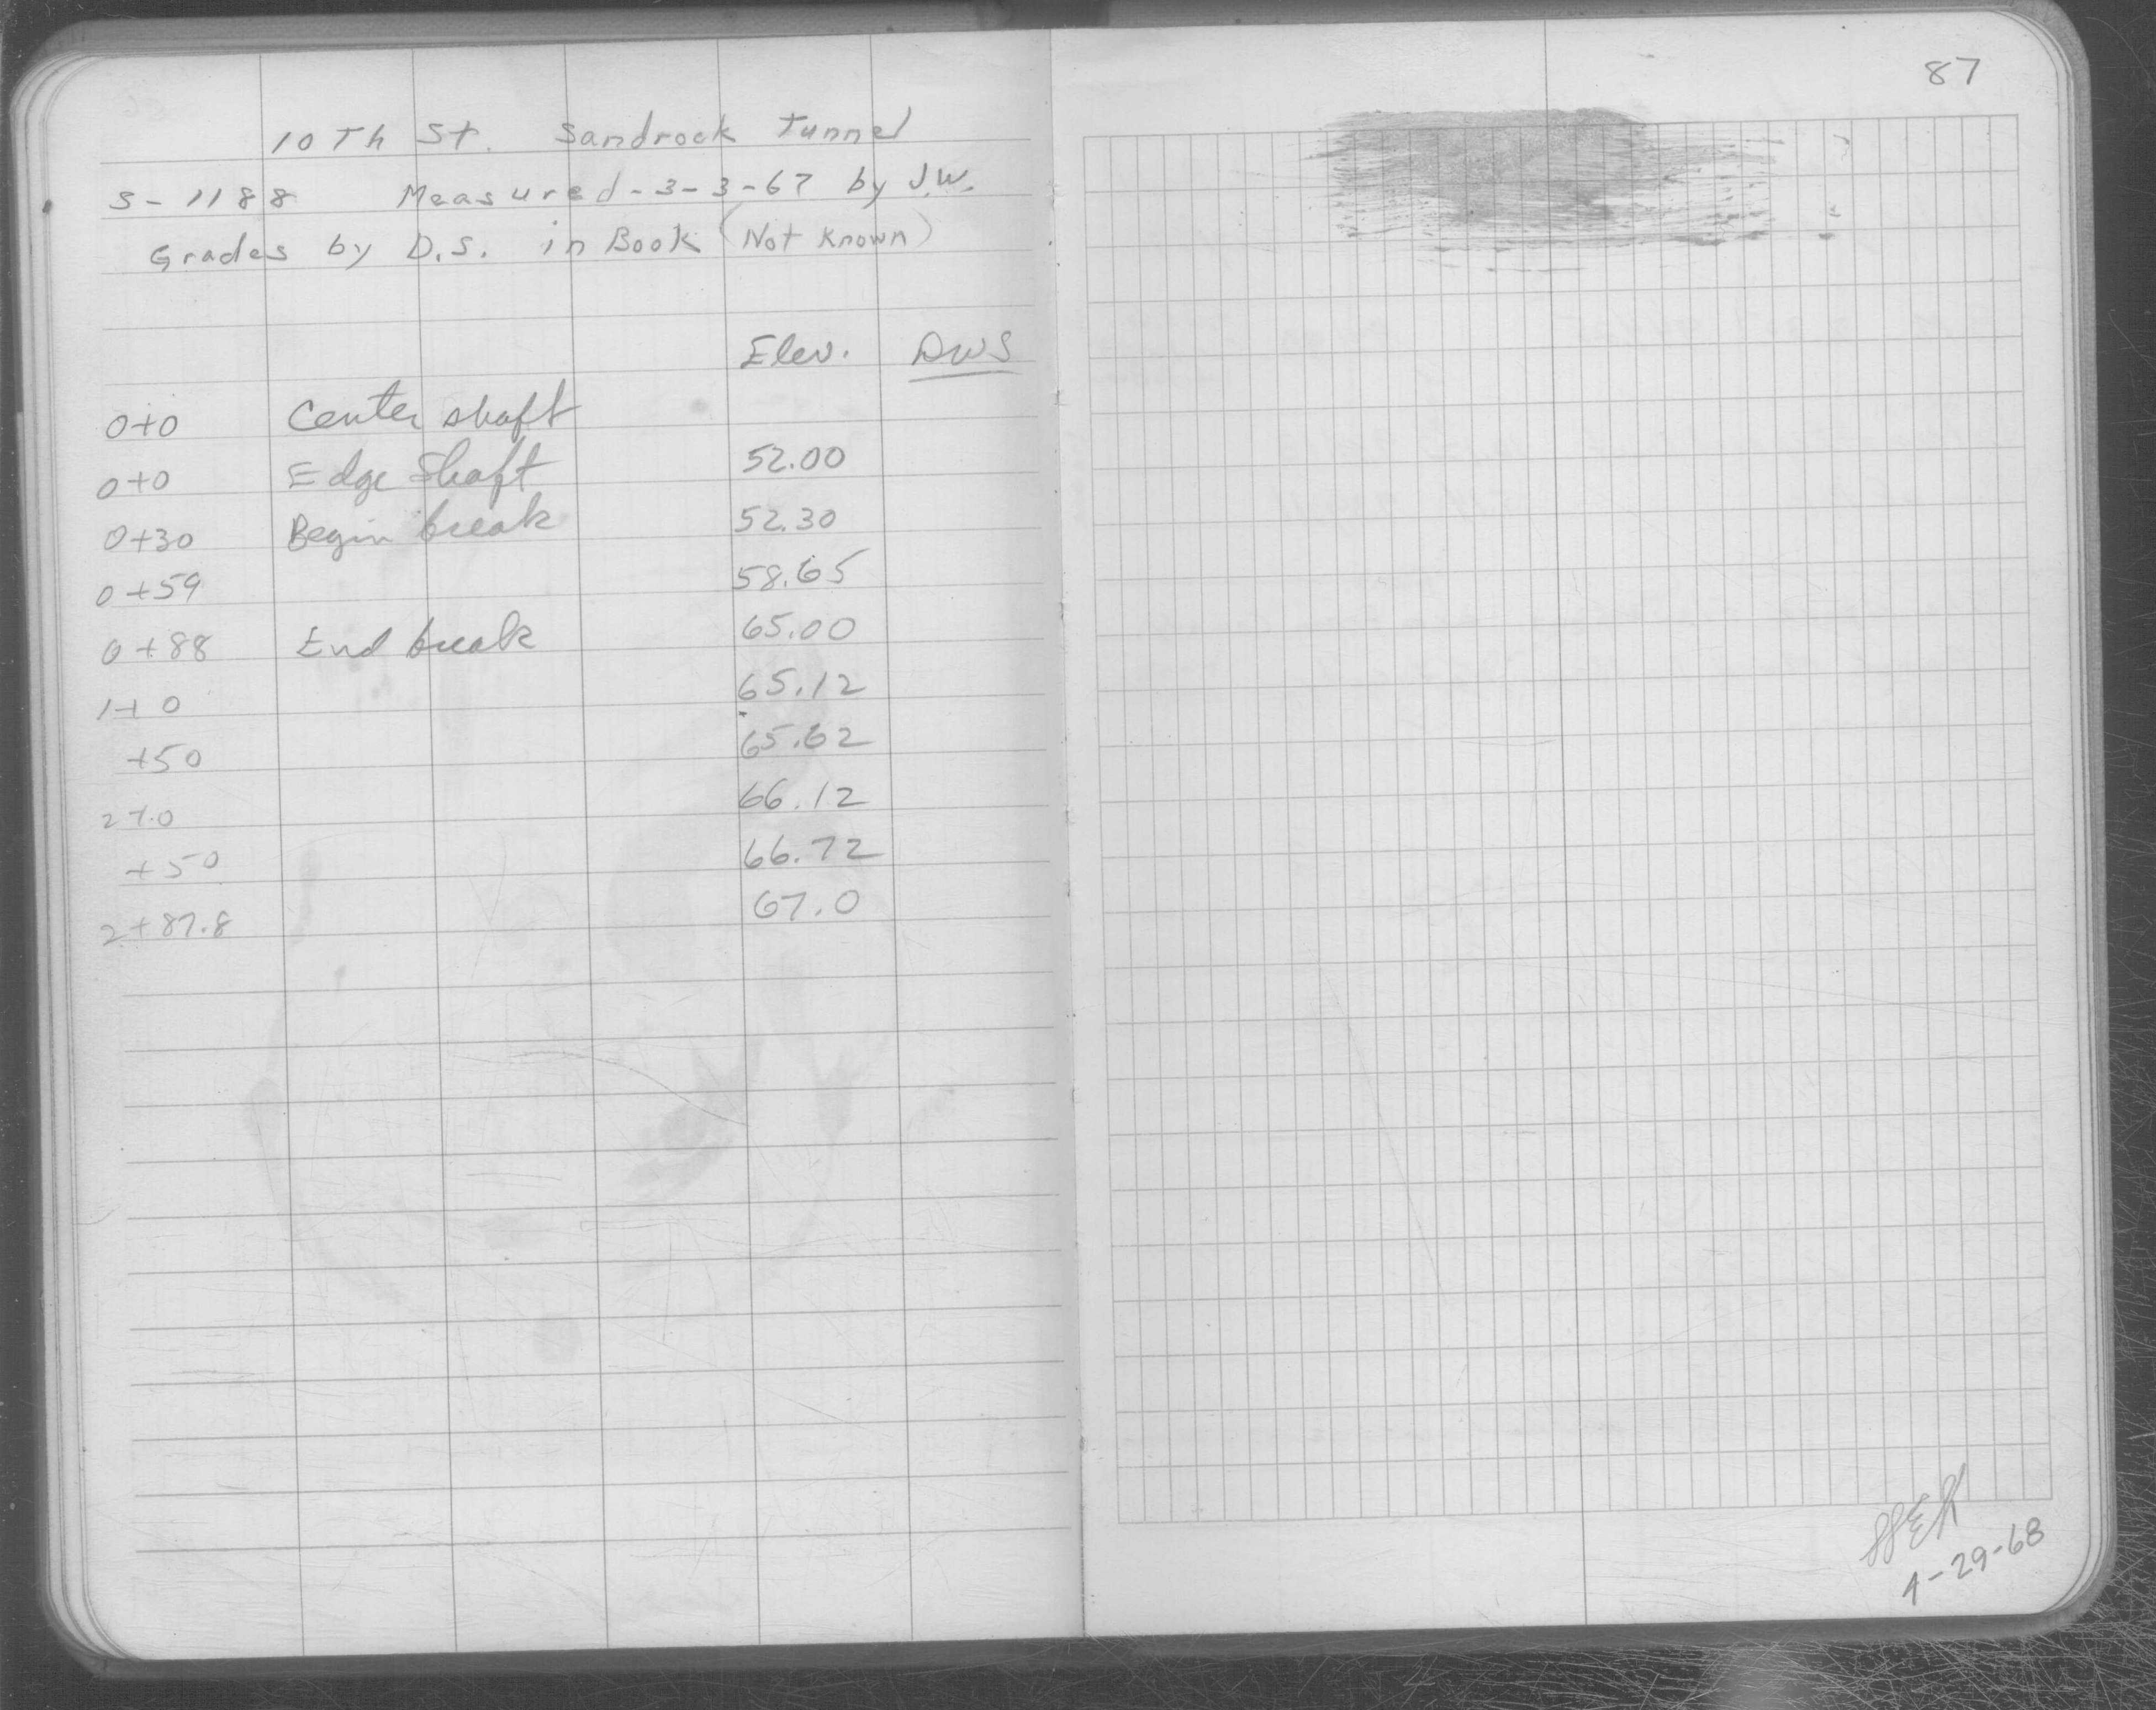 10Th St. Sandrock Tunnel
S-1188 Measured-3-3-67 by J.W.
Grades by D.S. in Book (Not Known)
Elev. DWS
0+0 Center shaft
0+0 Edge Shaft 52.00
0+30 Begin break 52.30
0+59 58.65
0+88 End break 65.00
1+0 65.12
+50 65.62
2+0 66.12
+50 66.72
2+87.8 67.0
87
4-29-68